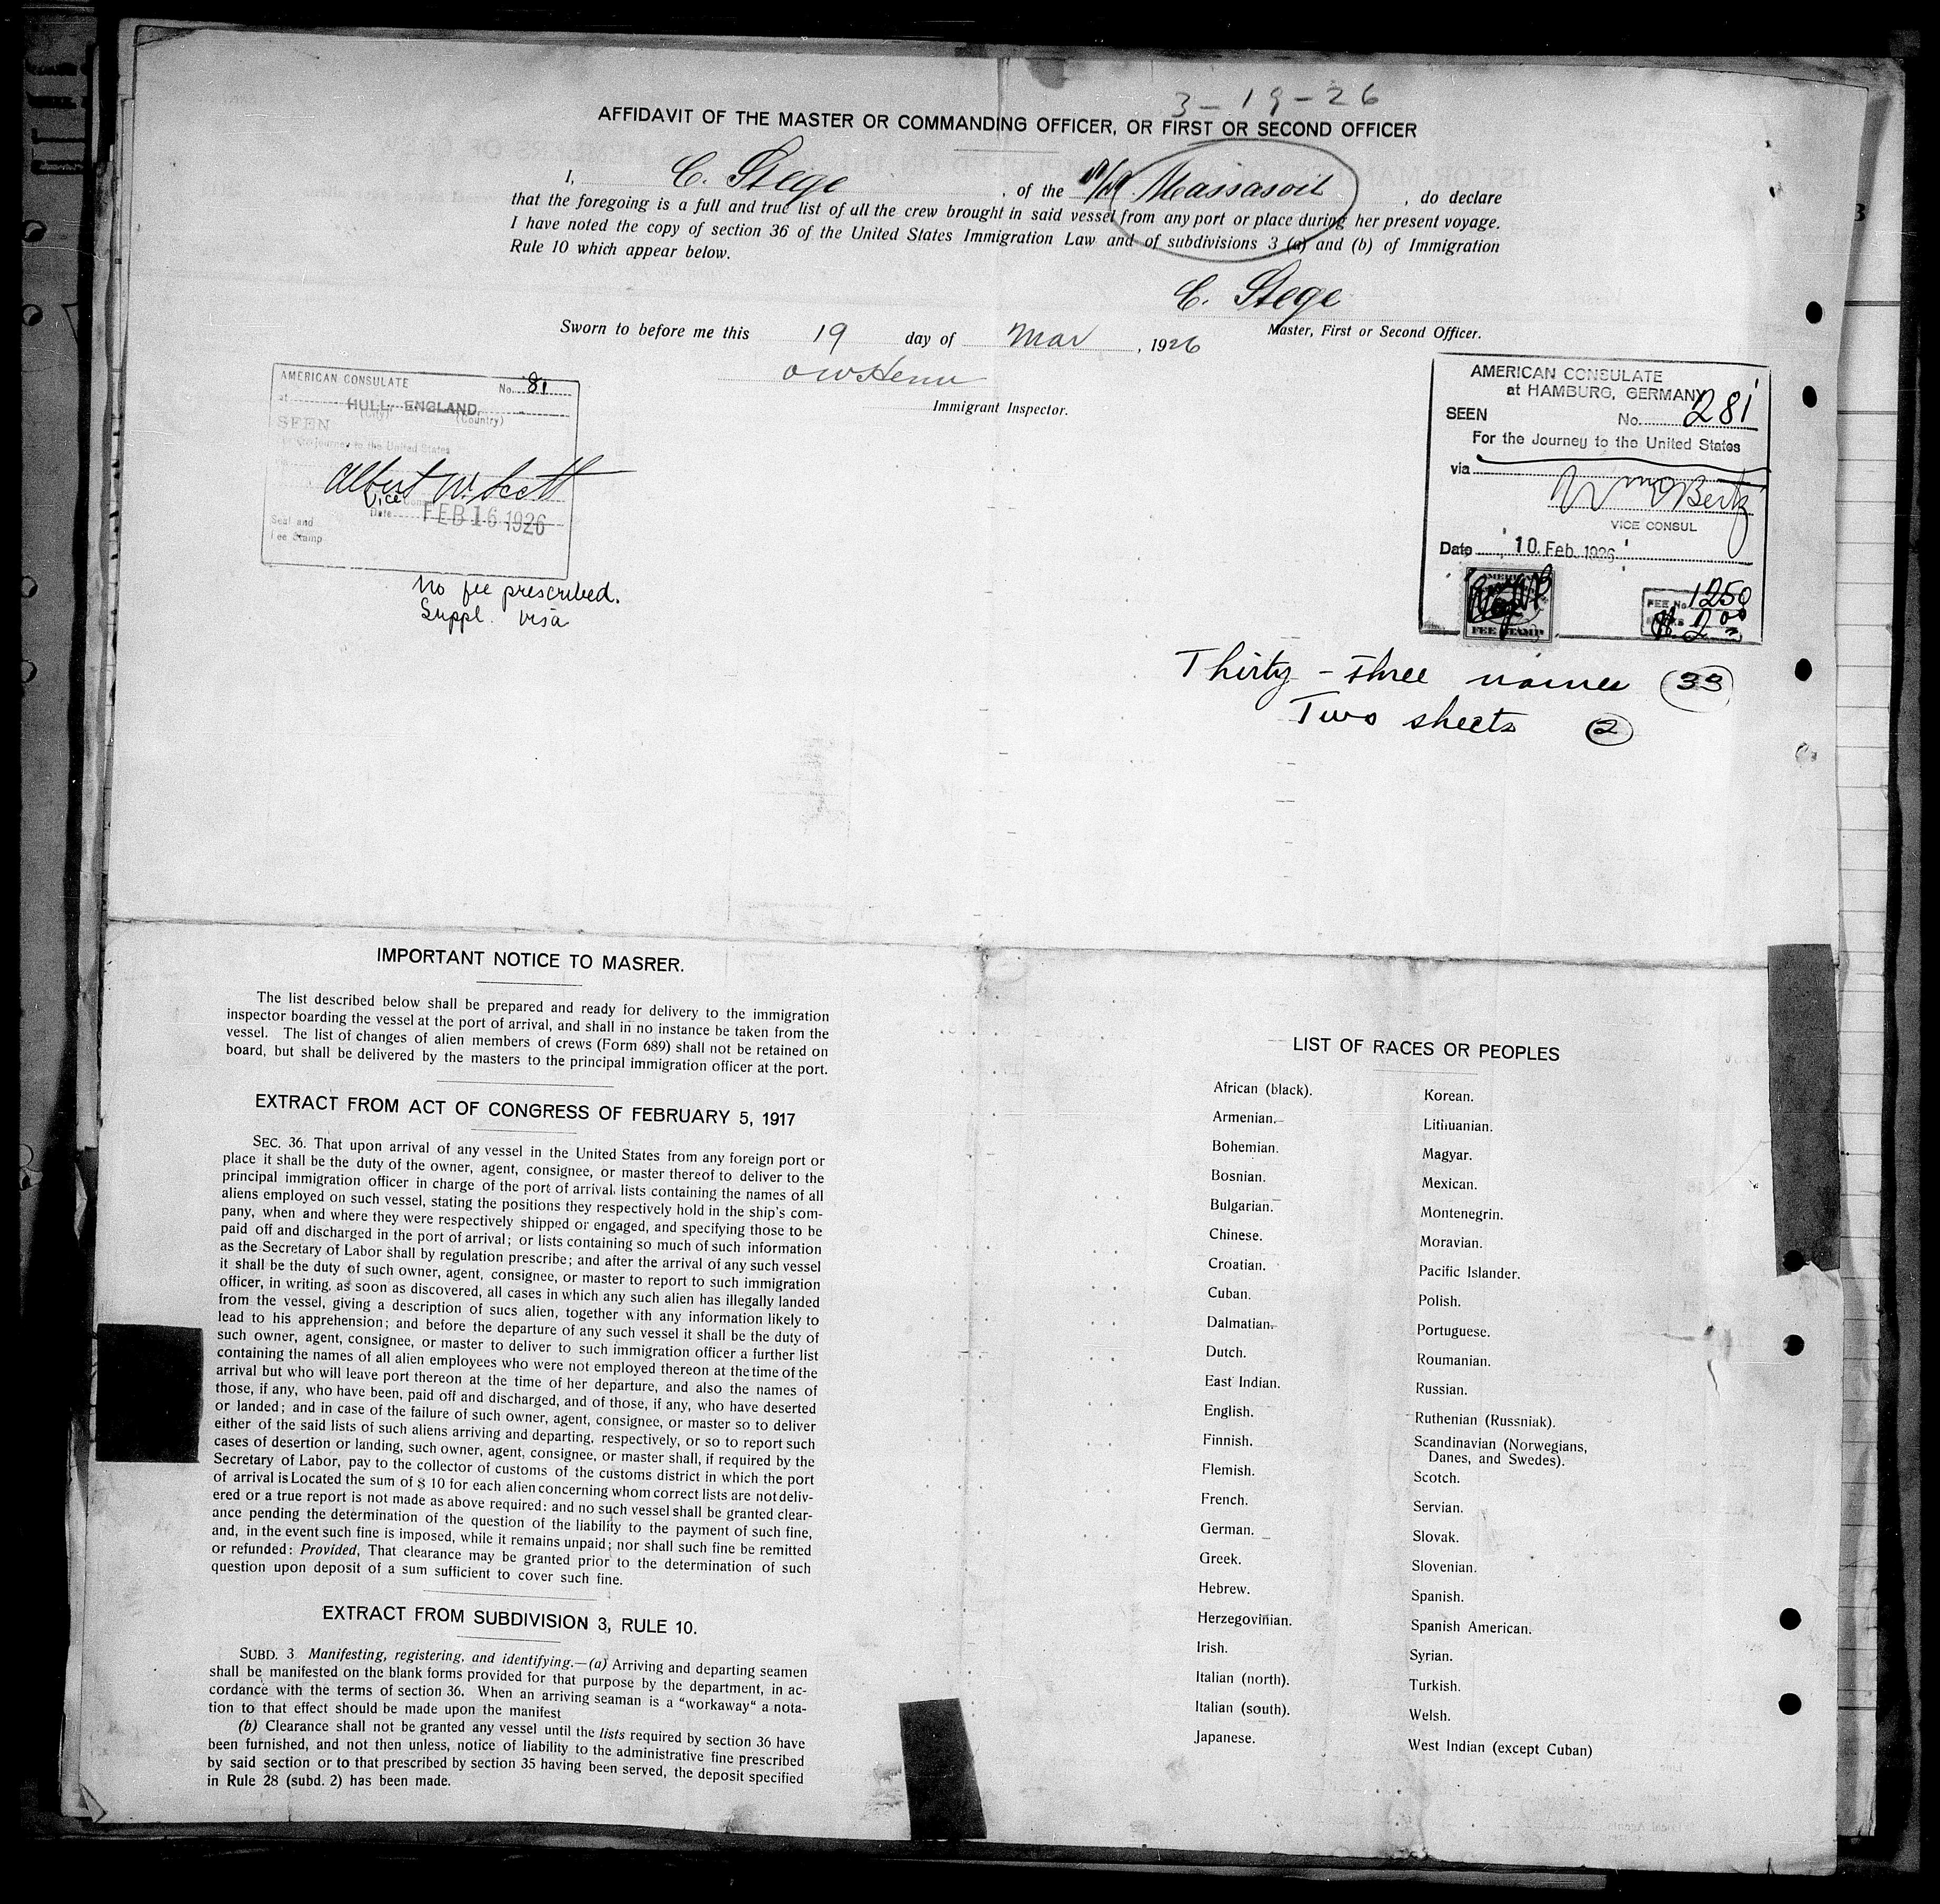 3-19-26
AFFIDAVIT OF THE MASTER OR COMMANDING OFFICER, OR FIRST OR SECOND OFFICER
I, C. Stege, of the Massasoit, do declare
that the foregoing is a full and true list of all the crew brought in said vessel from any port or place during her present voyage.
I have noted the copy of section 36 of the United States Immigration Law and of subdivisions 3 (a) and (b) of Immigration
Rule 10 which appear below.
C. Stege
Master, First or Second Officer.
Sworn to before me this 19 day of Mar, 1926
Immigrant Inspector.
AMERICAN CONSULATE No. 81
at HULL ENGLAND
(City) (Country)
SEEN
For the Journey to the United States
Albert W. Scott
Vice Consul
Date FEB 16 1926
Seal and
Fee Stamp
No fee prescribed.
Suppl. visa
AMERICAN CONSULATE
at HAMBURG, GERMANY
SEEN No. 281
For the Journey to the United States
via
VICE CONSUL
Date 10. Feb. 1926
AMERICAN
FEE STAMP
FEE No. 1250
Thirty-three names (33)
Two sheets (2)
IMPORTANT NOTICE TO MASRER.
The list described below shall be prepared and ready for delivery to the immigration
inspector boarding the vessel at the port of arrival, and shall in no instance be taken from the
vessel. The list of changes of alien members of crews (Form 689) shall not be retained on
board, but shall be delivered by the masters to the principal immigration officer at the port.
EXTRACT FROM ACT OF CONGRESS OF FEBRUARY 5, 1917
SEC. 36. That upon arrival of any vessel in the United States from any foreign port or
place it shall be the duty of the owner, agent, consignee, or master thereof to deliver to the
principal immigration officer in charge of the port of arrival lists containing the names of all
aliens employed on such vessel, stating the positions they respectively hold in the ship's com-
pany, when and where they were respectively shipped or engaged, and specifying those to be
paid off and discharged in the port of arrival; or lists containing so much of such information
as the Secretary of Labor shall by regulation prescribe; and after the arrival of any such vessel
it shall be the duty of such owner, agent, consignee, or master to report to such immigration
officer, in writing, as soon as discovered, all cases in which any such alien has illegally landed
from the vessel, giving a description of sucs alien, together with any information likely to
lead to his apprehension; and before the departure of any such vessel it shall be the duty of
such owner, agent, consignee, or master to deliver to such immigration officer a further list
containing the names of all alien employees who were not employed thereon at the time of the
arrival but who will leave port thereon at the time of her departure, and also the names of
those, if any, who have been, paid off and discharged, and of those, if any, who have deserted
or landed; and in case of the failure of such owner, agent, consignee, or master so to deliver
either of the said lists of such aliens arriving and departing, respectively, or so to report such
cases of desertion or landing, such owner, agent, consignee, or master shall, if required by the
Secretary of Labor, pay to the collector of customs of the customs district in which the port
of arrival is Located the sum of $ 10 for each alien concerning whom correct lists are not deliv-
ered or a true report is not made as above required: and no such vessel shall be granted clear-
ance pending the determination of the question of the liability to the payment of such fine,
and, in the event such fine is imposed, while it remains unpaid; nor shall such fine be remitted
or refunded: Provided, That clearance may be granted prior to the determination of such
question upon deposit of a sum sufficient to cover such fine.
EXTRACT FROM SUBDIVISION 3, RULE 10.
SUBD. 3 Manifesting, registering, and identifying.—(a) Arriving and departing seamen
shall be manifested on the blank forms provided for that purpose by the department, in ac-
cordance with the terms of section 36. When an arriving seaman is a "workaway" a nota-
tion to that effect should be made upon the manifest
(b) Clearance shall not be granted any vessel until the lists required by section 36 have
been furnished, and not then unless, notice of liability to the administrative fine prescribed
by said section or to that prescribed by section 35 having been served, the deposit specified
in Rule 28 (subd. 2) has been made.
LIST OF RACES OR PEOPLES
African (black).
Armenian.
Bohemian.
Bosnian.
Bulgarian.
Chinese.
Croatian.
Cuban.
Dalmatian.
Dutch.
East Indian.
English.
Finnish.
Flemish.
French.
German.
Greek.
Hebrew.
Herzegovinian.
Irish.
Italian (north).
Italian (south).
Japanese.
Korean.
Lithuanian.
Magyar.
Mexican.
Montenegrin.
Moravian.
Pacific Islander.
Polish.
Portuguese.
Roumanian.
Russian.
Ruthenian (Russniak).
Scandinavian (Norwegians,
Danes, and Swedes).
Scotch.
Servian.
Slovak.
Slovenian.
Spanish.
Spanish American.
Syrian.
Turkish.
Welsh.
West Indian (except Cuban)